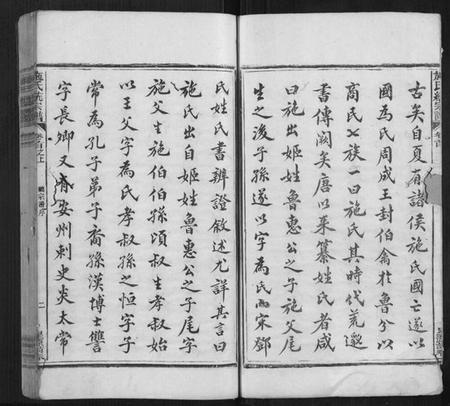 古矣自夏有諸侯施氏國亡遂以
國為氏周成王封伯禽於魯分以
商民七族一曰施氏其時代荒邈
書傳闕矣唐以來纂姓氏者咸
曰施出姬姓魯惠公之子施父尾
生之後子孫遂以字為氏而宋鄧
氏姓氏書辨證敘述尤詳其言曰
施氏出自姬姓魯惠公之子尾字
施父生施伯伯孫頃叔生孝叔始
以王父字為氏孝叔孫之恒字子
常為孔子弟子裔孫漢博士讎
字長卿又有安州刺史炎太常
施氏統宗譜 卷首
統宗譜序
二